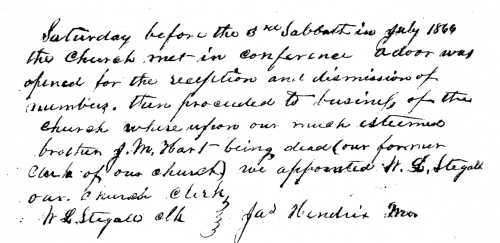 Saturday before the 3rd Sabbath in July 1864
the Church met in conference a door was
opened for the reception and dismission of
members. then proceded to business of the
church where upon our much esteemed
brother J. M. Hart being dead (our former
Clerk of our church) we appointed W. L. Stegall
our Church Clerk
W L Stegall clk Jas Hendrix Mod